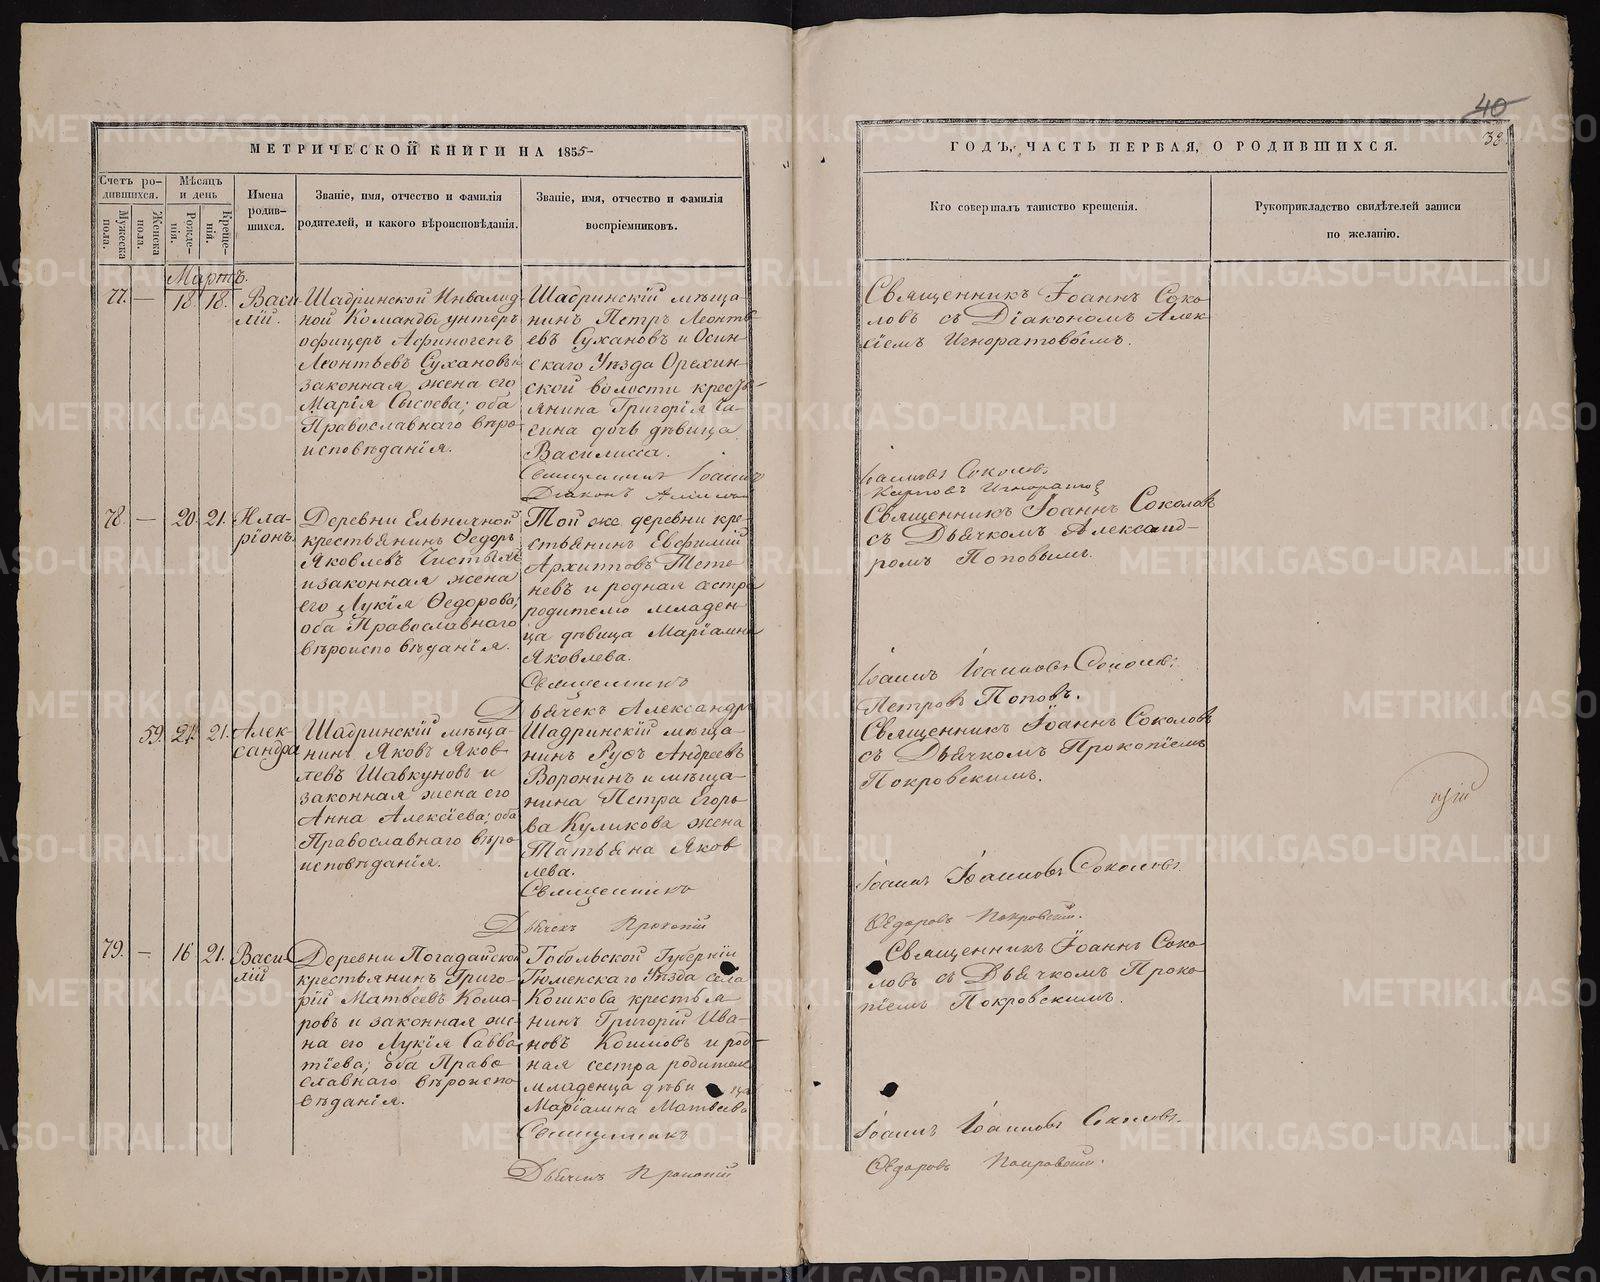 40
38
МЕТРИЧЕСКОЙ КНИГИ НА 1855
ГОДЪ, ЧАСТЬ ПЕРВАЯ, О РОДИВШИХСЯ.
Счетъ ро-
дившихся.
Мужеска
пола.
Женска
пола.
Мѣсяцъ
и день
Рожде-
нія.
Креще-
ній.
Имена
родив-
шихся.
Званіе, имя, отчество и фамилія
родителей, и какого вѣроисповѣданія.
Званіе, имя, отчество и фамилія
воспріемниковъ.
Кто совершалъ таинство крещенія.
Рукоприкладство свидѣтелей записи
по желанію.
Мартъ.
77. — 18 18.
Васи
лій.
Шадринской Инвалид
ной Команды унтеръ
офицеръ Афиногенъ
Леонтьевъ Сухановъ и
законная жена его
Марія Сысоева; оба
Православнаго вѣро
исповѣданія.
Шадринскій мѣща-
нинъ Петръ Леонть
евъ Сухановъ и Осин
скаго Уѣзда Орехин-
ской волости кресть-
янина Григорія Ча-
сина дочь дѣвица
Василисса.
Священникъ Іоаннъ
Діаконъ
Священникъ Іоаннъ Соко-
ловъ съ Діакономъ Алек
сіемъ Игноратовымъ.
Іоанновъ Соколовъ
Карповъ Игноратовъ
78. — 20 21.
Ила-
ріонъ
Деревни Ельничной
крестьянинъ Ѳедоръ
Яковлевъ Чистыхъ
и законная жена
его Лукія Ѳедорова;
оба Православнаго
вѣроисповѣданія.
Той же деревни кре-
стьянинъ Евфимій
Архиповъ Тете
невъ и родная сестра
родителю младен
ца дѣвица Маріамна
Яковлева.
Священникъ
Дьячекъ Александръ
Священникъ Іоаннъ Соколовъ
съ Дьячкомъ Александ-
ромъ Поповымъ.
Іоаннъ Іоанновъ Соколовъ.
Петровъ Поповъ.
59. 21. 21.
Алек-
сандра
Шадринскій мѣща-
нинъ Яковъ Яков
левъ Шавкуновъ и
законная жена его
Анна Алексіева; оба
Православнаго вѣро
исповѣданія.
Шадринскій мѣща-
нинъ Руфъ Андреевъ
Воронинъ и мѣща-
нина Петра Егоро
ва Куликова жена
Татьяна Яков
лева.
Священникъ
Дьячекъ Прокопій
Священникъ Іоаннъ Соколовъ
съ Дьячкомъ Прокопіемъ
Покровскимъ.
Іоаннъ Іоанновъ Соколовъ.
Ѳедоровъ Покровскій.
79. — 16 21.
Васи-
лій
Деревни Погадайской
крестьянинъ Григо-
рій Матвеевъ Кома-
ровъ и законная же-
на его Лукія Савва
тіева; оба Право
славнаго вѣроиспо
вѣданія.
Тобольской Губерніи
Тюменскаго Уѣзда села
Кошкова крестья
нинъ Григорій Ива-
новъ Кошковъ и род-
ная сестра родителю
младенца дѣви ца
Маріамна Матвеева
Священникъ
Дьячекъ Прокопій
Священникъ Іоаннъ Соко-
ловъ съ Дьячкомъ Проко-
піемъ Покровскимъ.
Іоаннъ Іоанновъ Соколовъ.
Ѳедоровъ Покровскій.
METRIKI.GASO-URAL.RU